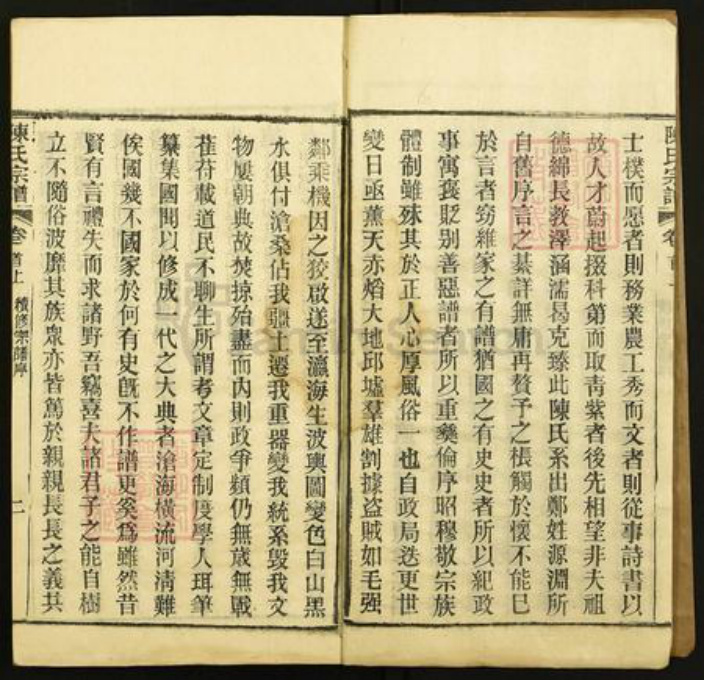 士樸而愿者則務業農工秀而文者則從事詩書以
故人才蔚起掇科第而取青紫者後先相望非夫祖
德綿長教澤涵濡曷克臻此陳氏系出鄭姓源淵所
自舊序言之綦詳無庸再贅予之棖觸於懷不能已
於言者竊維家之有譜猶國之有史史者所以紀政
事寓褒貶别善惡譜者所以重彝倫序昭穆敬宗族
體制雖殊其於正人心厚風俗一也自政局迭更世
變日亟薰天亦熖大地邱墟羣雄割據盗賊如毛强
鄰乘機因之狡啟遂至瀛海生波輿圖變色白山黑
水俱付滄桑佔我疆土遷我重器變我統系毀我文
物屢朝典故焚掠殆盡而内則政爭頻仍無歲無戰
萑苻載道民不聊生所謂考文章定制度學人珥筆
纂集國聞以修成一代之大典者滄海橫流河清難
俟國幾不國家於何有史旣不作譜更奚爲雖然昔
賢有言禮失而求諸野吾竊喜夫諸君子之能自樹
立不隨俗波靡其族衆亦皆篤於親親長長之義其
陳氏宗譜
卷首上
續修宗譜序
二
陳氏宗譜
卷首上